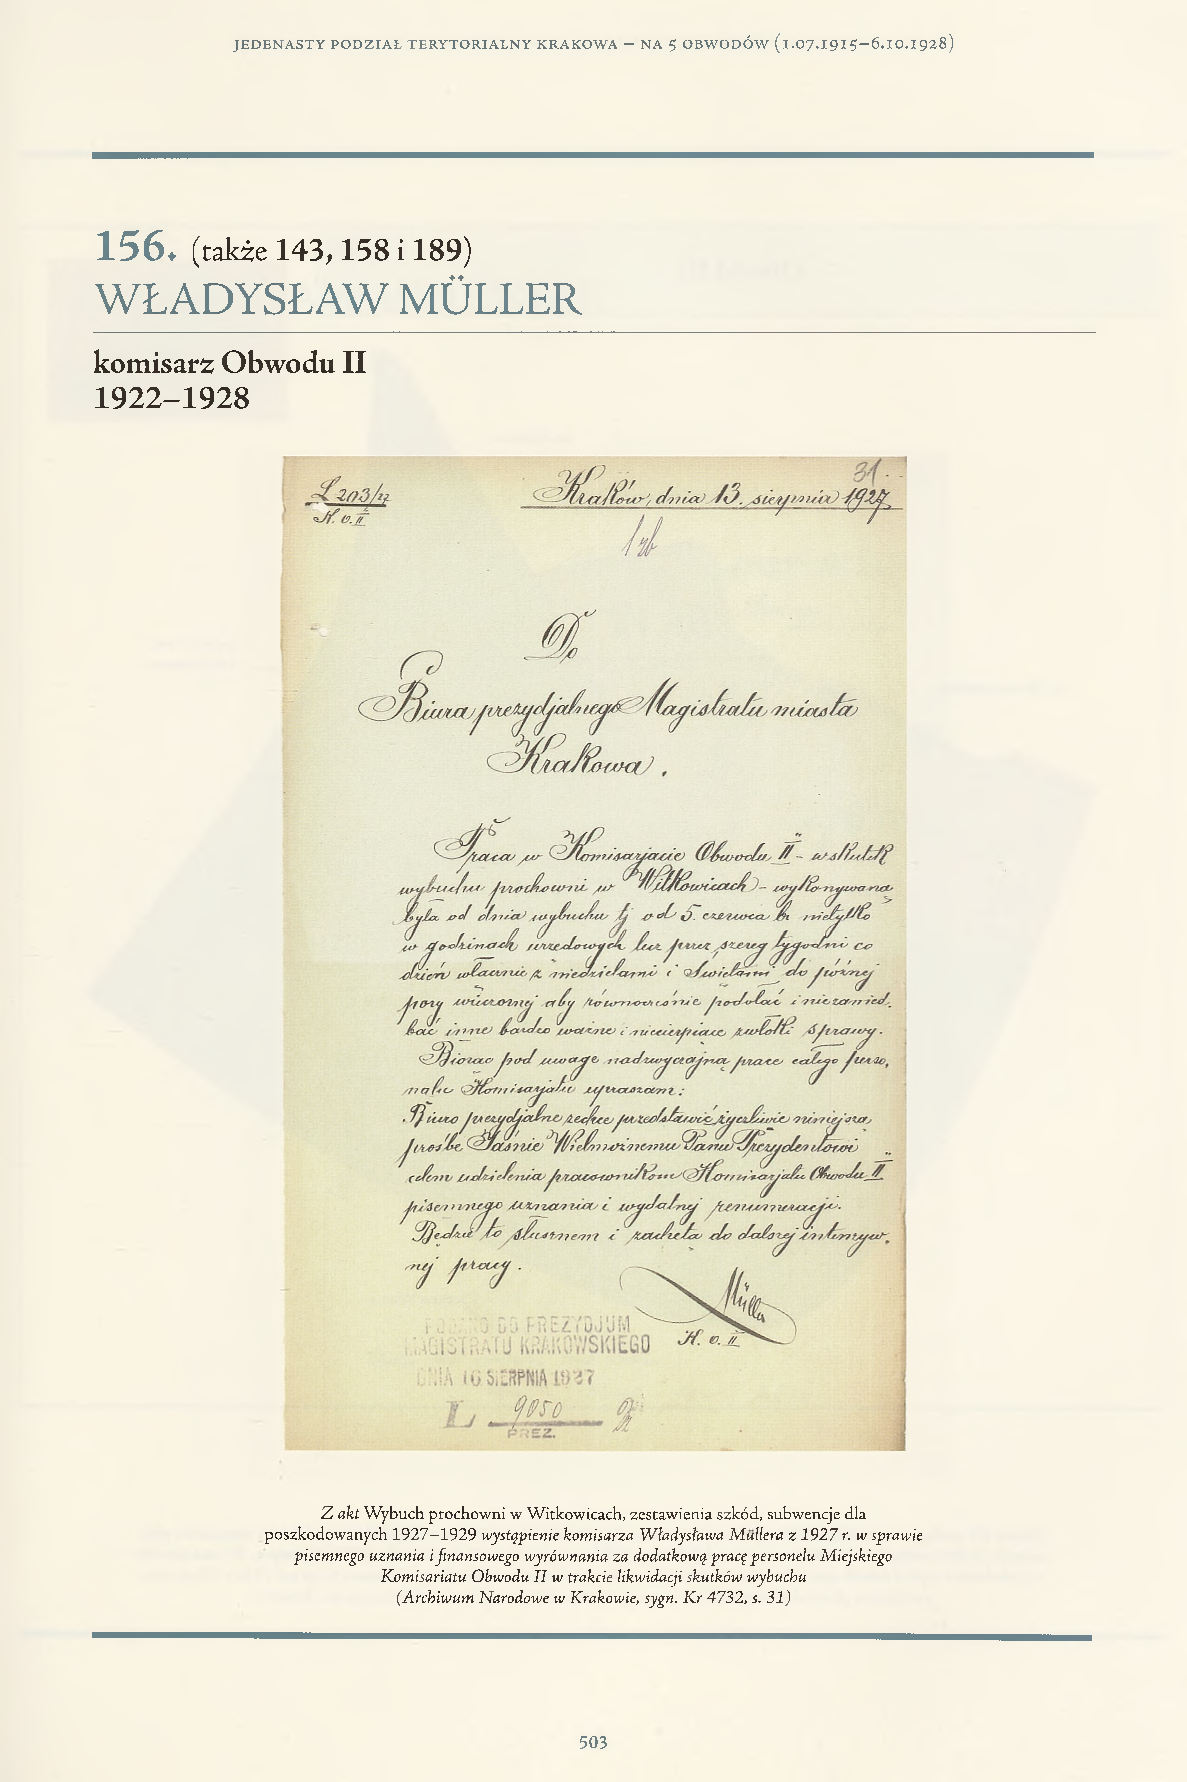 JEDENASTY PODZIAŁ TERYTORIALNY KRAKOWA — NA 5 OBWODÓW (1.07.1915—6.10.1928)
156. (także 143, 158 i 189)
WŁADYSŁAW MÜLLER
komisarz Obwodu II
1922–1928
31.
L 203/27
K. O. II
Kraków, dnia 13. sierpnia 1927
Do
Biura prezydjalnego Magistratu miasta
Krakowa.
Praca w Komisarjacie Obwodu II - wskutek
wybuchu prochowni w Witkowicach - wykonywana
była od dnia wybuchu tj od 5. czerwca br nietylko
w godzinach urzędowych lecz przez szereg tygodni co
dzień włącznie z niedzielami i świętami do późnej
pory wieczornej aby równocześnie podołać i niezanied-
bać inne bardzo ważne i niecierpiące zwłoki sprawy.
Biorąc pod uwagę nadzwyczajną pracę całego perso,
nalu Komisarjatu upraszam:
Biuro prezydjalne zechce przedstawić życzliwie niniejszą
prośbę Jaśnie Wielmożnemu Panu Prezydentowi
celem udzielenia pracownikom Komisarjatu Obwodu II
pisemnego uznania i wydatnej renumeracji.
Będzie to słusznem i zachętą do dalszej intenzyw,
nej pracy.
Müller
K. O. II
PODANO DO PREZYDJUM
MAGISTRATU KRAKOWSKIEGO
DNIA 16 SIERPNIA 1927
L 9050
PREZ.
Z akt Wybuch prochowni w Witkowicach, zestawienia szkód, subwencje dla
poszkodowanych 1927–1929 wystąpienie komisarza Władysława Müllera z 1927 r. w sprawie
pisemnego uznania i finansowego wyrównania za dodatkową pracę personelu Miejskiego
Komisariatu Obwodu II w trakcie likwidacji skutków wybuchu
(Archiwum Narodowe w Krakowie, sygn. Kr 4732, s. 31)
503